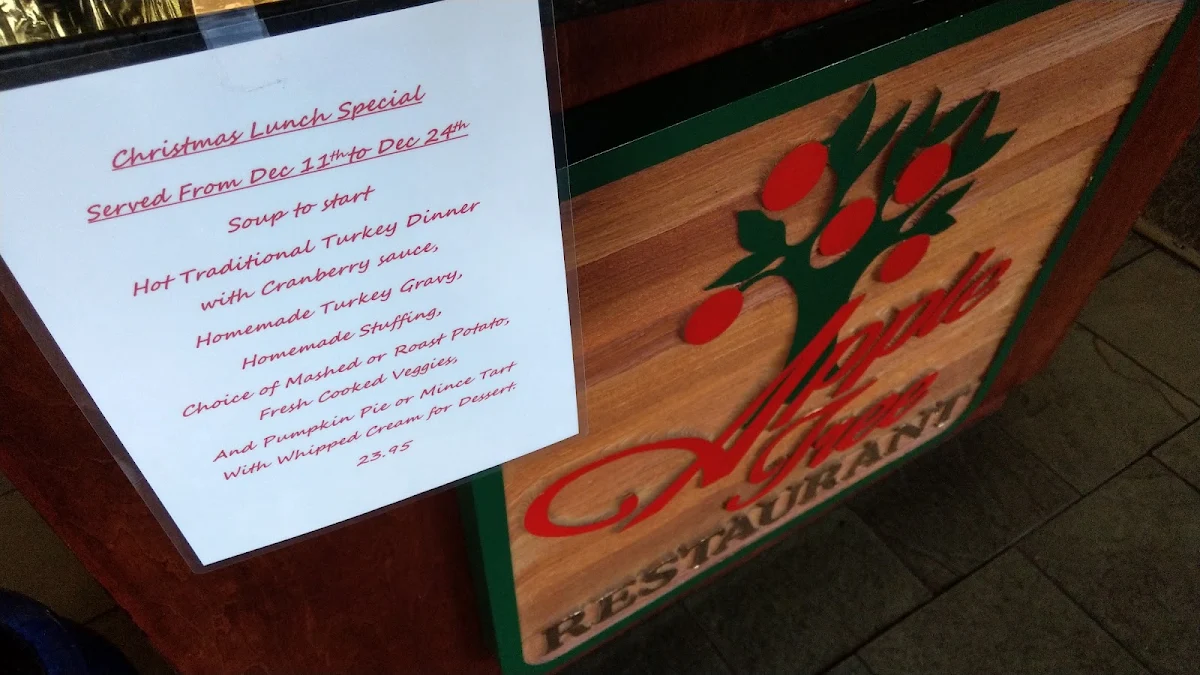 Christmas Lunch Special
Served From Dec 11th to Dec 24th
Soup to start
Hot Traditional Turkey Dinner
with Cranberry sauce,
Homemade Turkey Gravy,
Homemade Stuffing,
Choice of Mashed or Roast Potato,
Fresh Cooked Veggies,
And Pumpkin Pie or Mince Tart
With Whipped Cream for Dessert.
23.95
Apple
Tree
RESTAURANT